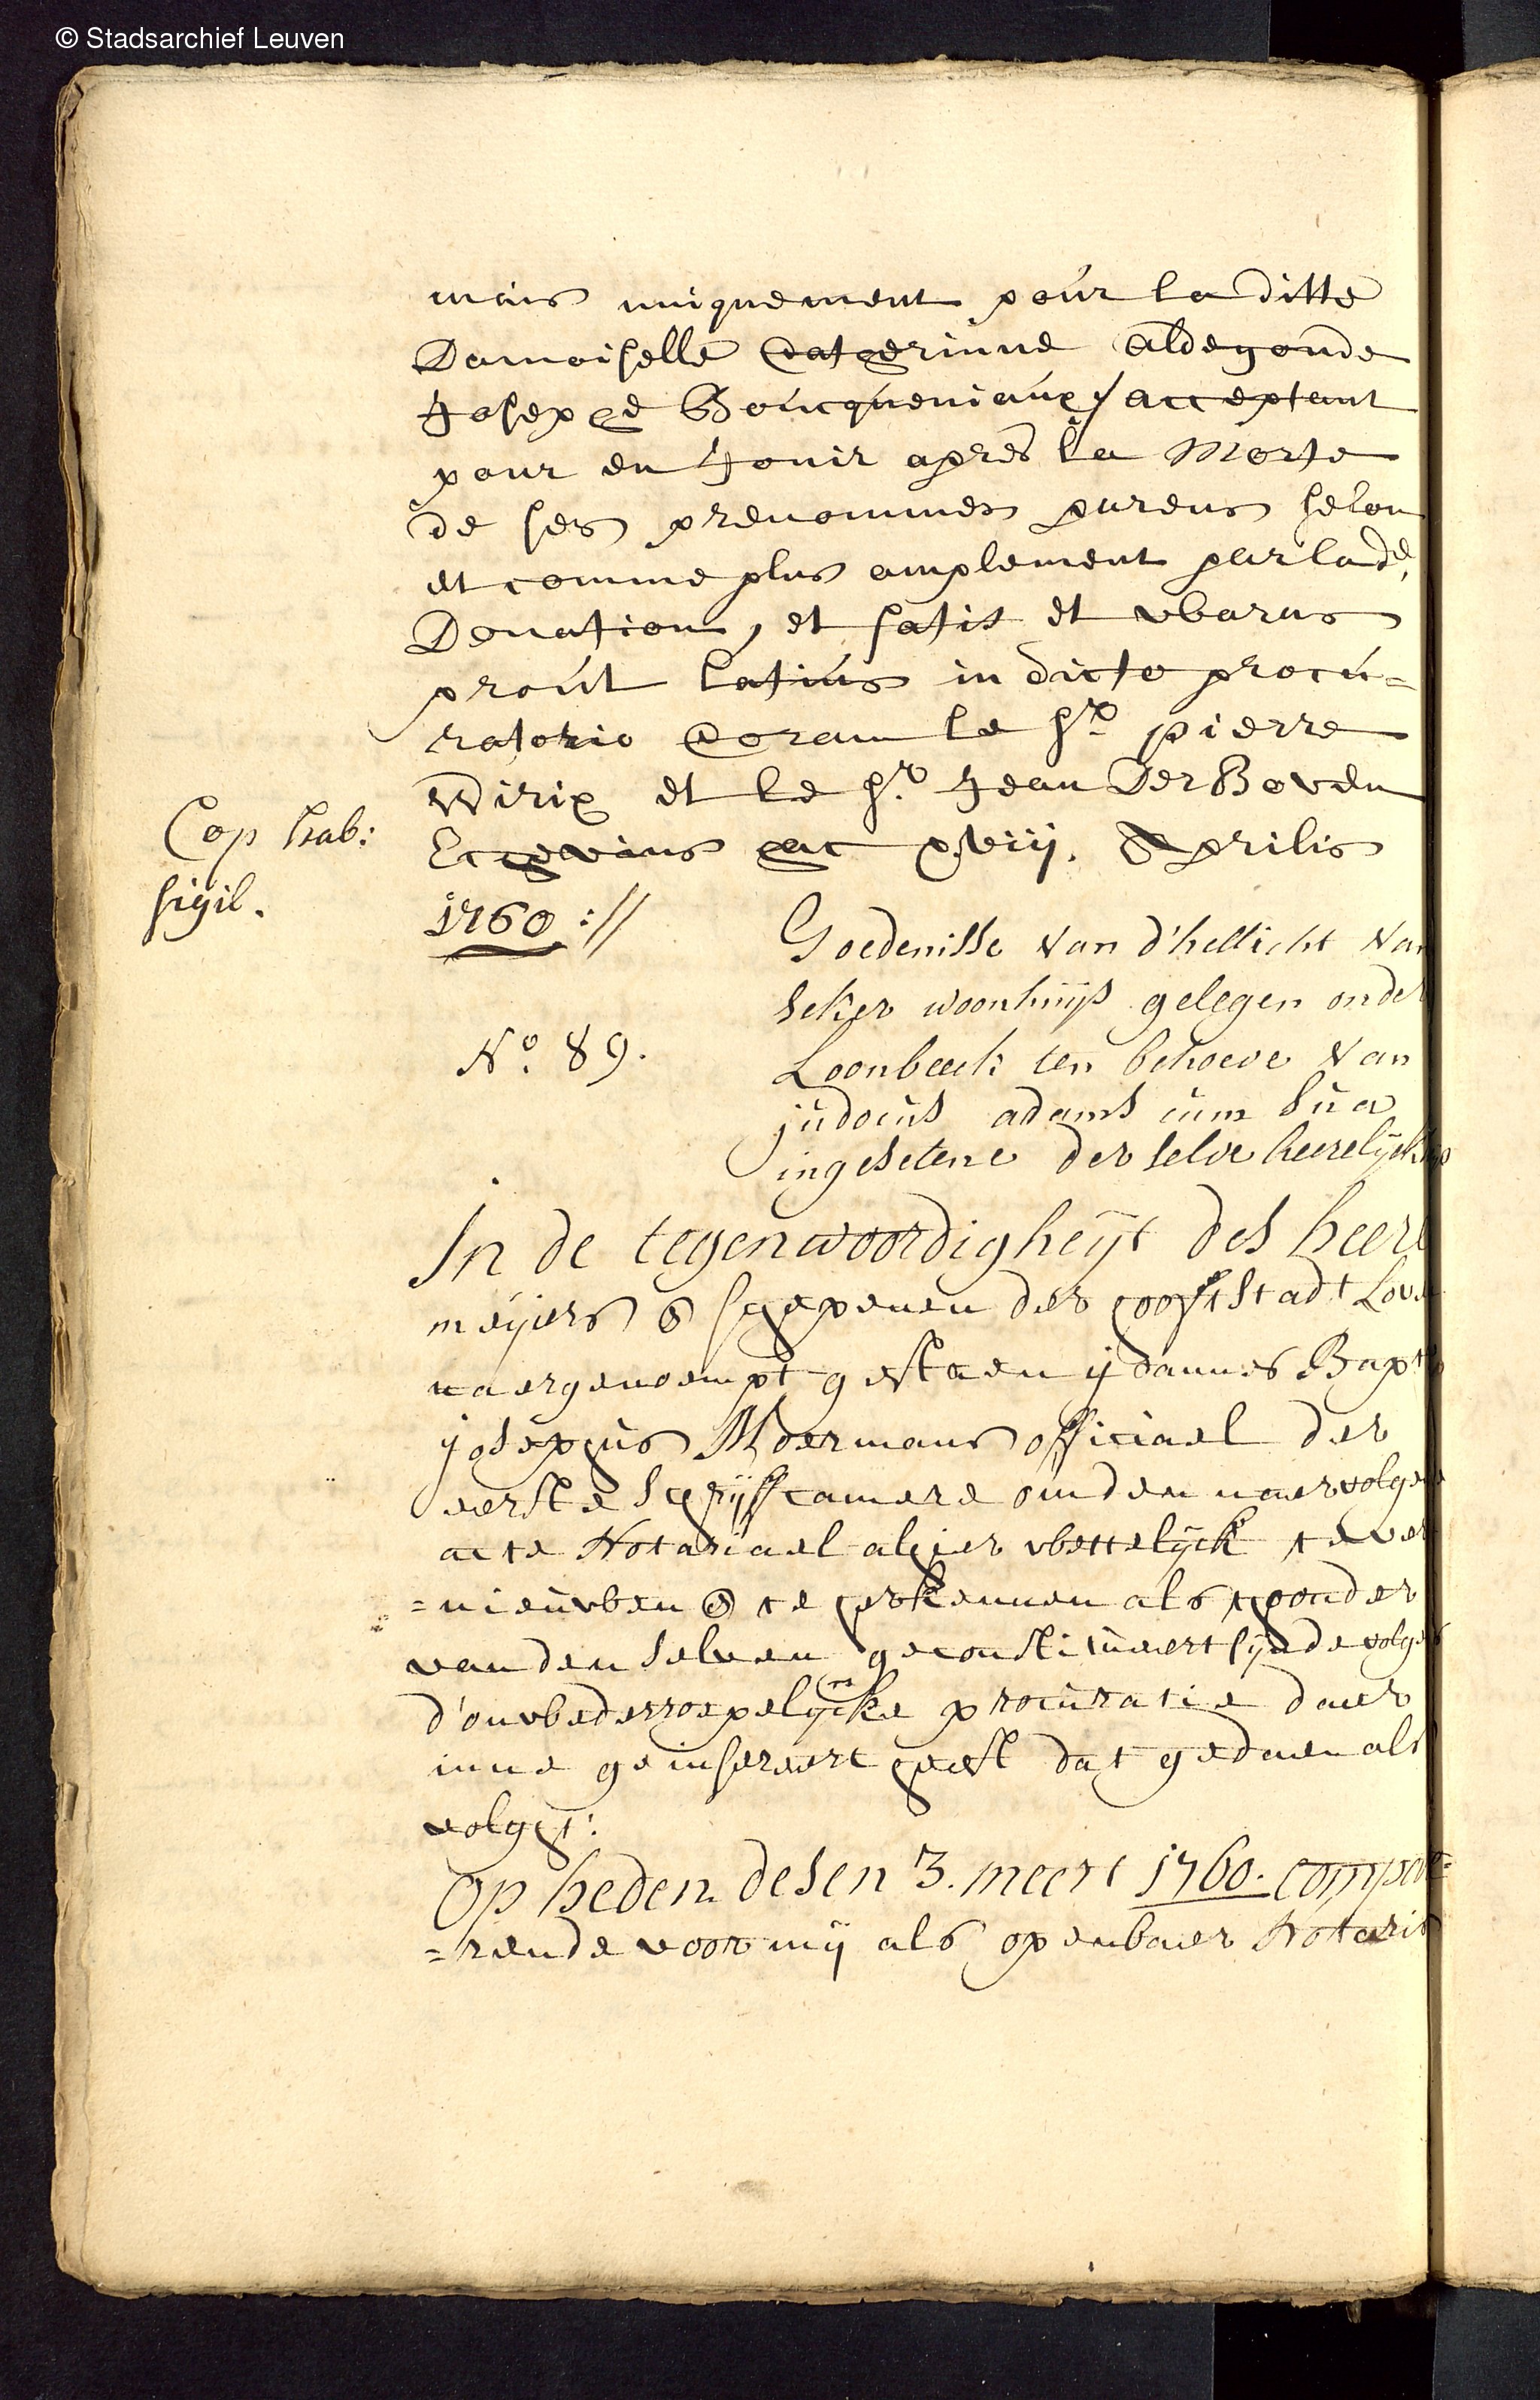 © Stadsarchief Leuven
mais uniquement pour la ditte
Damoiselle Catherinne Aldegonde
Josephe Boucqueniaux / acceptant
pour en Jouir apres la Morte
de ses prenommes parens selon
et comme plus amplement par lad.e
Donation, et satis et waras
proút latiús in dicto procú=
ratorio Coram le Sr. pierre
Wirix et le Sr. Jean Der Boven
Eschevins hac xviij. Aprilis
1760 ://
Cop hab:
sigil.
Goedenisse van d'hellicht van
seker woonhuijs gelegen onder
Loonbeeck ten behoeve van
judocus adams cum sua
ingesetene der selve heerelijckh
No. 89.
In de tegenwoordigheijt des heere
meijers & schepenen der hooftstadt Love
naergenoempt gestaen ijoannes Bapt
ijosephus Moermans officiael der
eerste schrijffcamere om den naervolgen
acte Notariael alhier wettelijck te ver
=nieuwen & te herkennen als thoonder
van den selven geconstitueert sijnde volgens
d'onwederroepelijcke procuratie daer
inne geinsereert heeft dat gedaen als
volght:
Op heden desen 3. meert 1760. compae=
=rende voor mij als openbaer Notaris